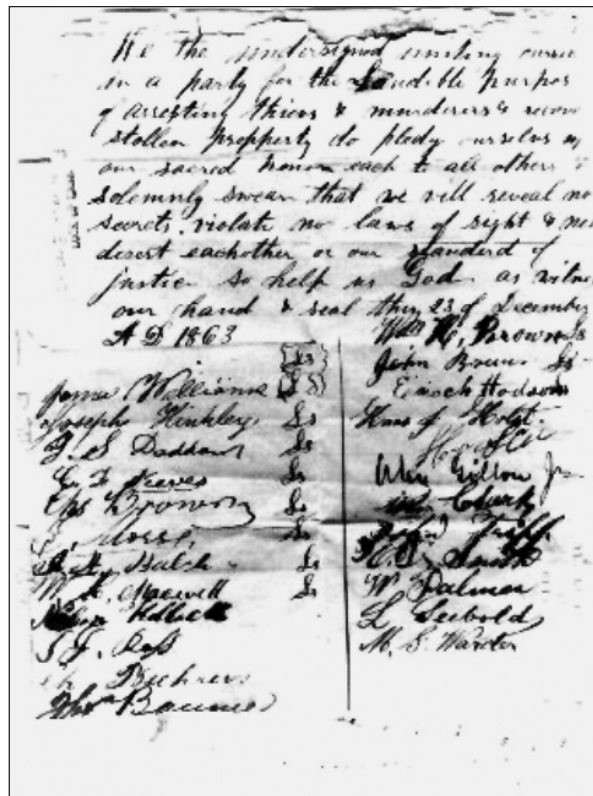 We the undersigned uniting ourse
in a party for the Laudible purpos
of arresting thievs & murderers & recove
stollen propperty do pledg ourselvs
our sacred honor each to all others &
solemnly swear that we will reveal no
secrets, violate no laws of right & nev
desert eachother or our standerd of
justice so help us God as witnes
our hand & seal this 23 of December
A D 1863
James Williams
Joseph Hinkley Ls
J. S. Daddow Ls
C. F. Keeves Ls
Chs Brown Ls
Morse Ls
Balch Ls
W. Maxwell Ls
Nelson Kellock
S. J. Ross
Buhrer
Thos Baume
Wm H, Brown Ls
John Brown Ls
Enoch Hodson
Hans J Holst.
Alex Gillon Jr
Clark
John Triff
Smith
W Palmer
L Seebold
M. S. Warder